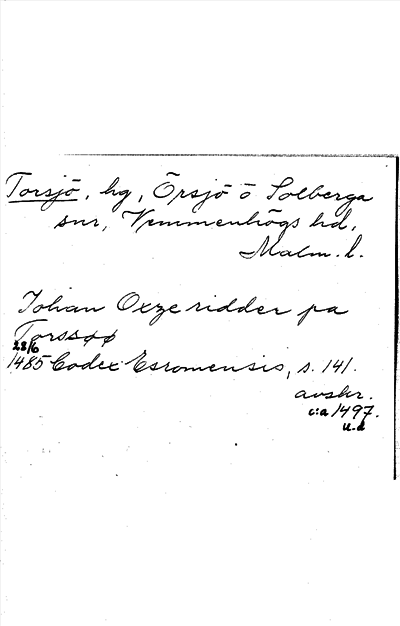 Torsjö, hg, Örsjö o Solberga
snr, Vemmenhögs hd,
Malm. l.
Johan Oxze ridder pa
Torssøø
28/6
1485 Codex Esromensis, s. 141.
avskr.
c:a 1497.
u.d